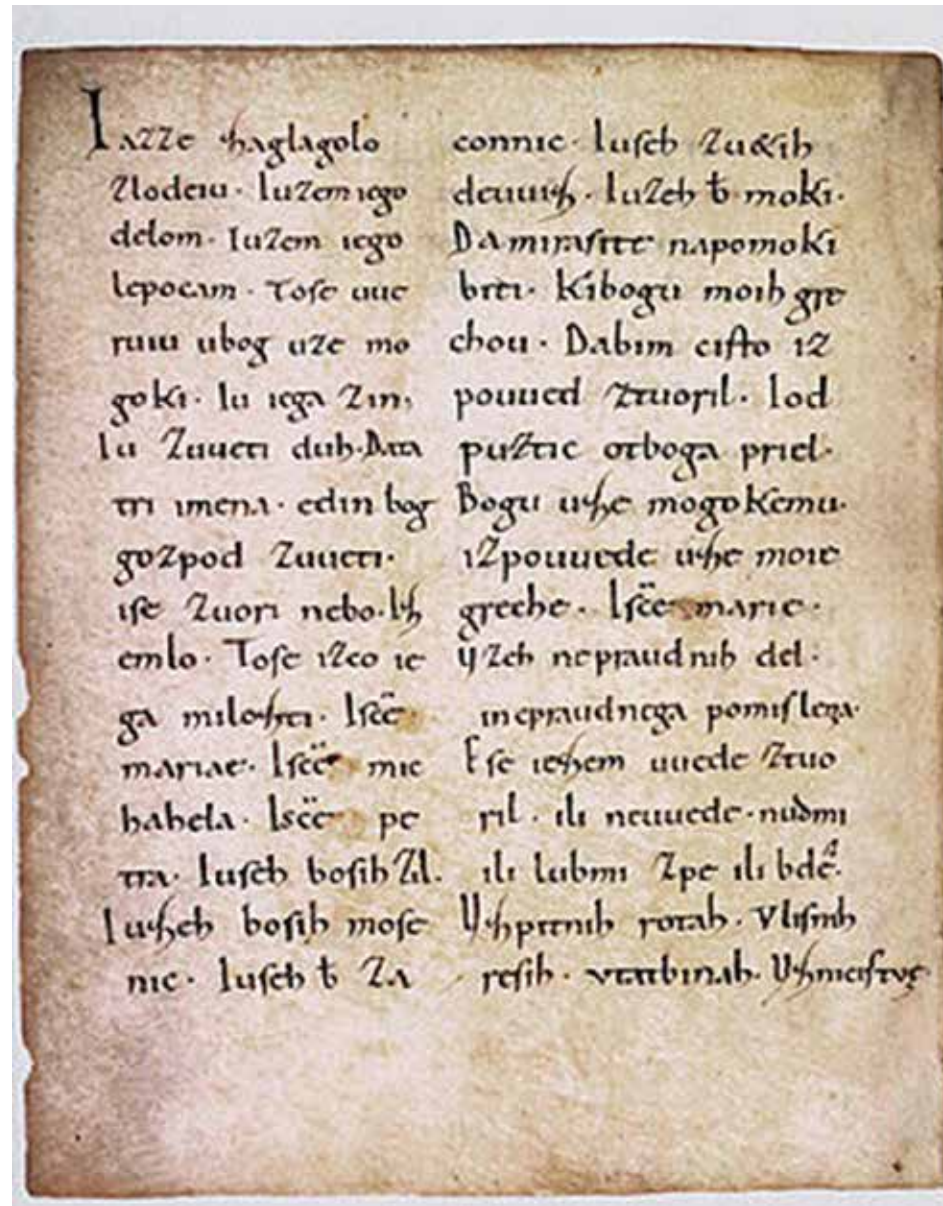 Iazze zaglagolo
zlodeiu. Iuzem iego
delom. Iuzem iego
lepocam. Tose uue
ruiu ubog uze mo
goki. Iu iega zin,
Iu zuueti duh. Data
tri imena. edin bog
gozpod zuueti.
ise zuori nebo. Iz
emlo. Tose izco ie
ga milozti. Isc̄e
mariae. Isc̄e mic
hahela. Isc̄e pe
tra. Iuseh bosih zil.
Iuzeh bosih mose
nic. Iuseh b̄ za
connic. Iuseh zu&ih
deuuiz. Iuzeh b̄ moki.
Da mirasite napomoki
biti. Kibogu moih gre
chou. Dabim cisto iz
pouued ztuoril. Iod
puztic otboga priel.
Bogu uze mogokemu.
izpouuede uze moie
greche. Isc̄e marie.
Uzeh nepraudnih del.
inepraudnega pomislena.
Ese iezem uuede ztuo
ril. ili neuuede. nudmi
ili lubmi zpe ili bde.
Uzpitnih rotah. Vlisnih
resih. vtatbinah. Uznicistve.